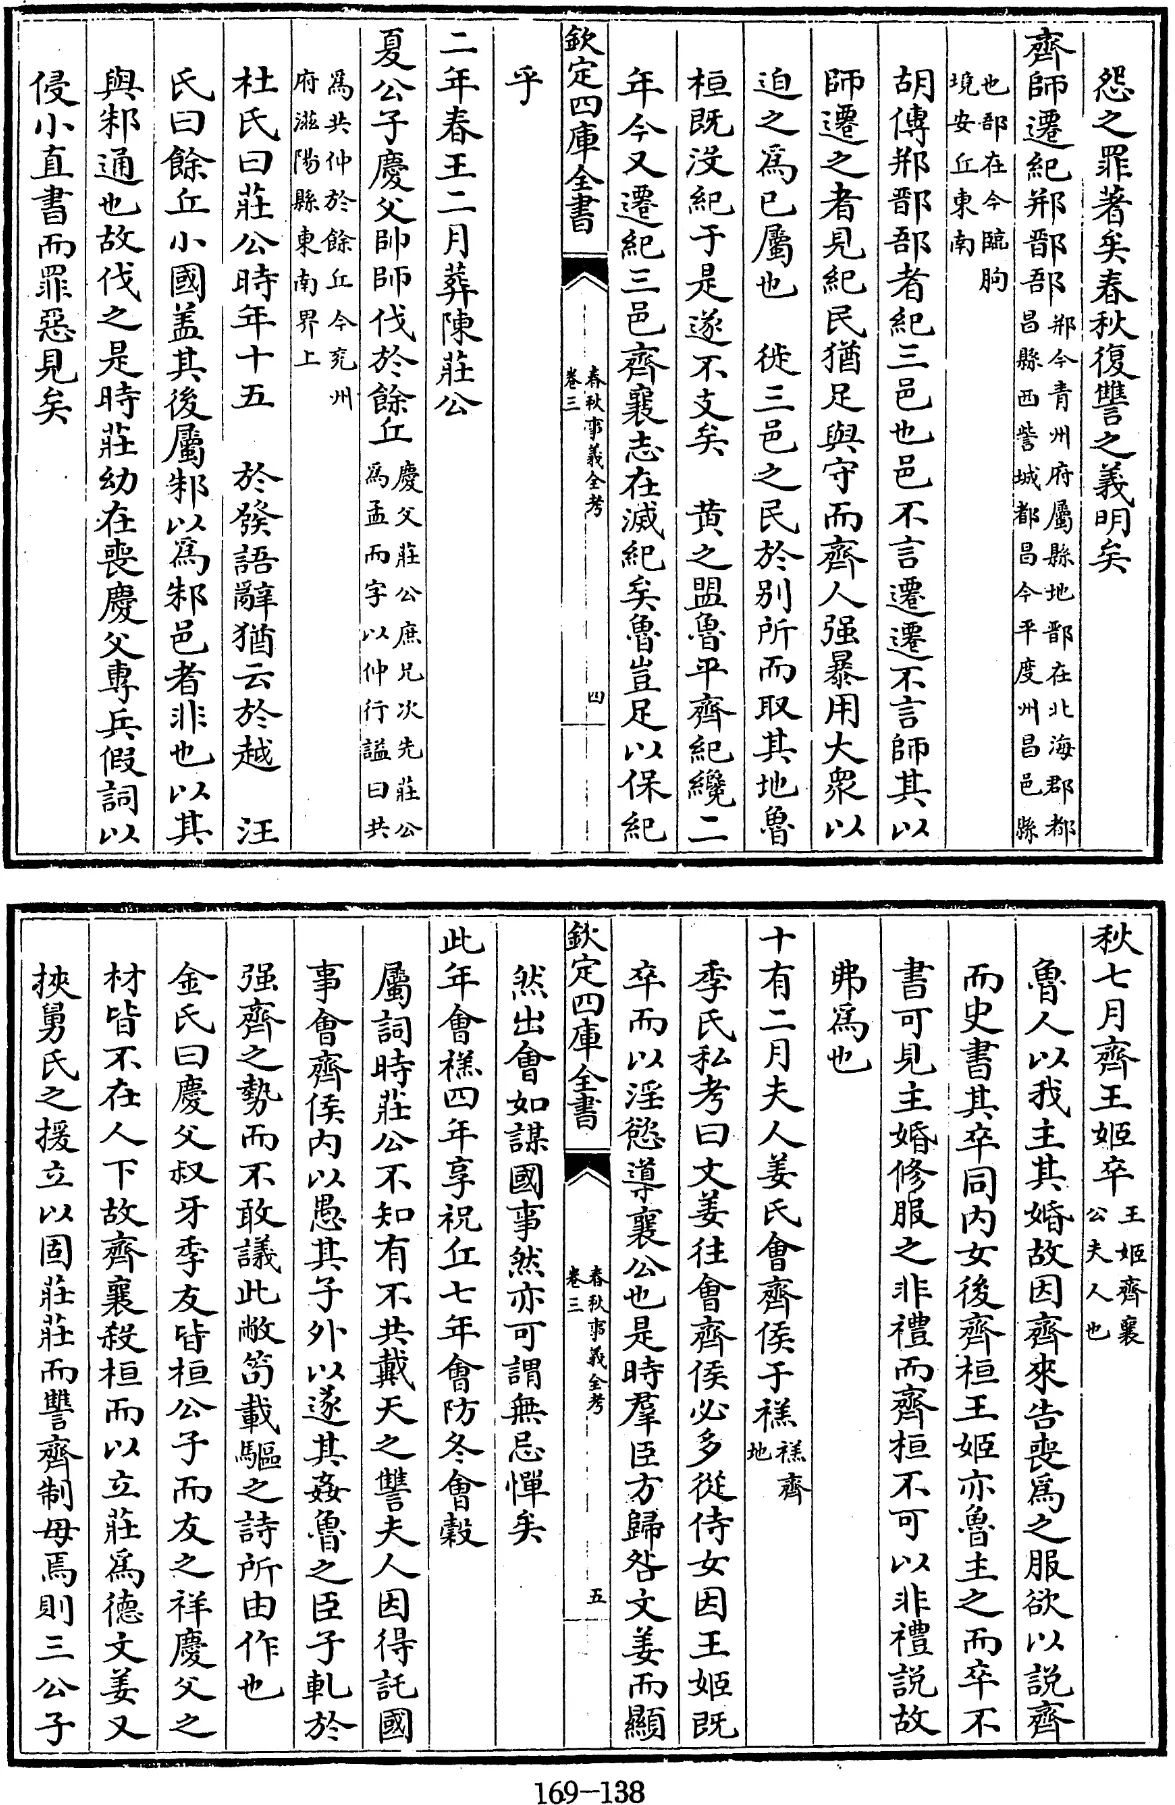 怨之罪著矣春秋復讐之義明矣
齊師遷紀郱鄑郚郱今青州府屬縣地鄑在北海郡都昌縣西訾城都昌今平度州昌邑縣
也郚在今臨朐境安丘東南
胡傳郱鄑郚者紀三邑也邑不言遷遷不言師其以
師遷之者見紀民猶足與守而齊人强暴用大衆以
迫之爲已屬也　徙三邑之民於别所而取其地魯
桓既没紀于是遂不支矣　黄之盟魯平齊紀纔二
年今又遷紀三邑齊襄志在滅紀矣魯豈足以保紀
欽定四庫全書　春秋事義全考卷三　四
乎
二年春王二月葬陳莊公
夏公子慶父帥師伐於餘丘慶父莊公庶兄次先莊公爲孟而字以仲行謚曰共
爲共仲於餘丘今兖州府滋陽縣東南界上
杜氏曰莊公時年十五　於發語辭猶云於越　汪
氏曰餘丘小國盖其後屬邾以爲邾邑者非也以其
與邾通也故伐之是時莊幼在喪慶父專兵假詞以
侵小直書而罪惡見矣
秋七月齊王姬卒王姬齊襄公夫人也
魯人以我主其婚故因齊來告喪爲之服欲以説齊
而史書其卒同内女後齊桓王姬亦魯主之而卒不
書可見主婚修服之非禮而齊桓不可以非禮説故
弗爲也
十有二月夫人姜氏會齊侯于禚禚齊地
季氏私考曰文姜往會齊侯必多從侍女因王姬既
卒而以淫慾導襄公也是時羣臣方歸咎文姜而顯
欽定四庫全書　春秋事義全考卷三　五
然出會如謀國事然亦可謂無忌憚矣
此年會禚四年享祝丘七年會防冬會穀
屬詞時莊公不知有不共戴天之讐夫人因得託國
事會齊侯内以愚其子外以遂其姦魯之臣子軋於
强齊之勢而不敢議此敝笱載驅之詩所由作也
金氏曰慶父叔牙季友皆桓公子而友之祥慶父之
材皆不在人下故齊襄殺桓而以立莊爲德文姜又
挾舅氏之援立以固莊莊而讐齊制母焉則三公子
169-138